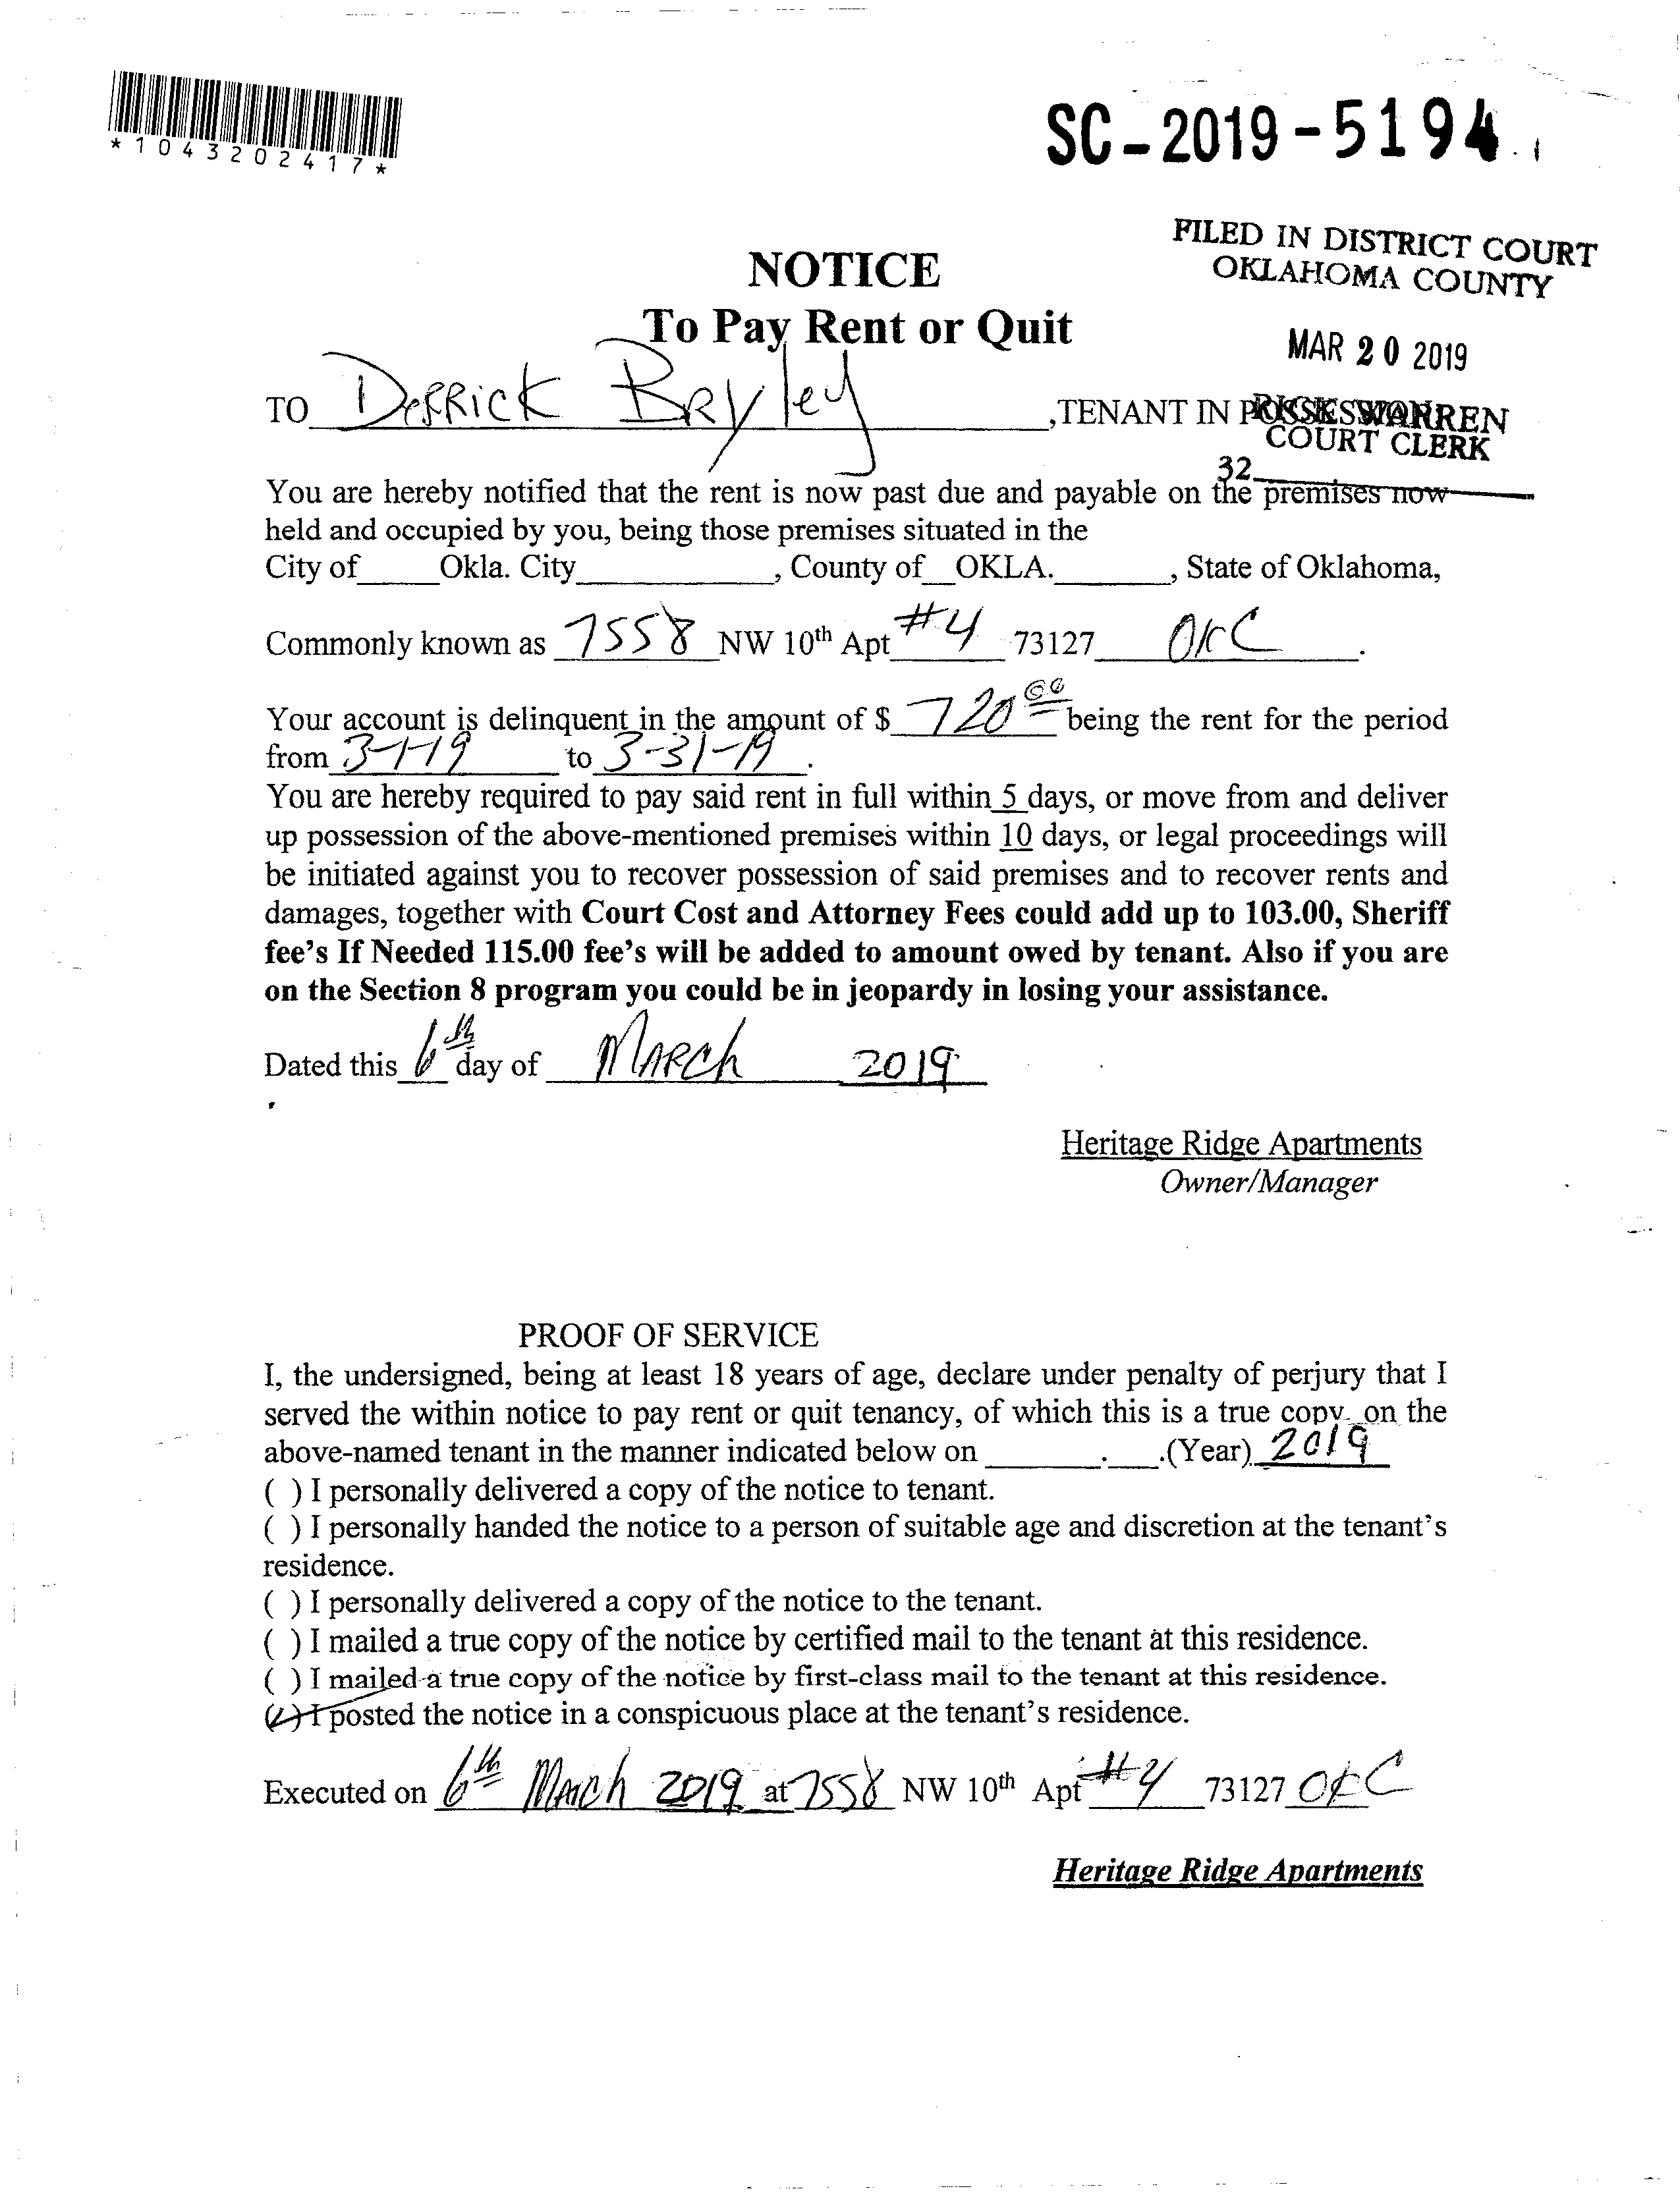 *1043202417*
SC-2019-5194
FILED IN DISTRICT COURT
OKLAHOMA COUNTY
NOTICE
To Pay Rent or Quit
MAR 20 2019
TO Derrick Bryley, TENANT IN POSSESSION
RICK WARREN
COURT CLERK
32
You are hereby notified that the rent is now past due and payable on the premises now
held and occupied by you, being those premises situated in the
City of Okla. City, County of OKLA., State of Oklahoma,
Commonly known as 7558 NW 10th Apt #4 73127 OKC.
Your account is delinquent in the amount of $ 720.00 being the rent for the period
from 3-1-19 to 3-31-19.
You are hereby required to pay said rent in full within 5 days, or move from and deliver
up possession of the above-mentioned premises within 10 days, or legal proceedings will
be initiated against you to recover possession of said premises and to recover rents and
damages, together with Court Cost and Attorney Fees could add up to 103.00, Sheriff
fee's If Needed 115.00 fee's will be added to amount owed by tenant. Also if you are
on the Section 8 program you could be in jeopardy in losing your assistance.
Dated this 6th day of MARCh 2019
Heritage Ridge Apartments
Owner/Manager
PROOF OF SERVICE
I, the undersigned, being at least 18 years of age, declare under penalty of perjury that I
served the within notice to pay rent or quit tenancy, of which this is a true copy on the
above-named tenant in the manner indicated below on . .(Year) 2019
( ) I personally delivered a copy of the notice to tenant.
( ) I personally handed the notice to a person of suitable age and discretion at the tenant's
residence.
( ) I personally delivered a copy of the notice to the tenant.
( ) I mailed a true copy of the notice by certified mail to the tenant at this residence.
( ) I mailed a true copy of the notice by first-class mail to the tenant at this residence.
(✓) I posted the notice in a conspicuous place at the tenant's residence.
Executed on 6th March 2019 at 7558 NW 10th Apt #4 73127 OKC
Heritage Ridge Apartments